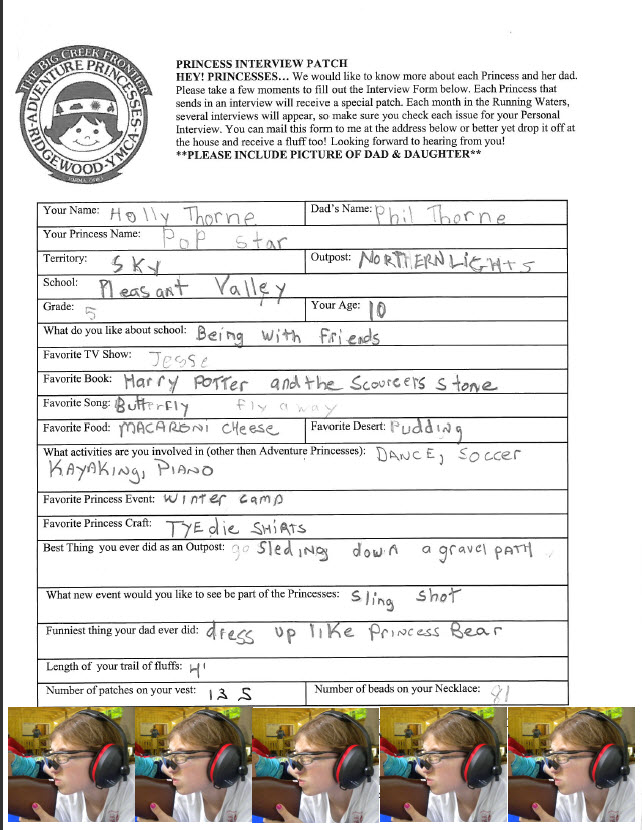 THE BIG CREEK FRONTIER
ADVENTURE PRINCESSES
RIDGEWOOD-YMCA
PRINCESS INTERVIEW PATCH
HEY! PRINCESSES… We would like to know more about each Princess and her dad.
Please take a few moments to fill out the Interview Form below. Each Princess that
sends in an interview will receive a special patch. Each month in the Running Waters,
several interviews will appear, so make sure you check each issue for your Personal
Interview. You can mail this form to me at the address below or better yet drop it off at
the house and receive a fluff too! Looking forward to hearing from you!
**PLEASE INCLUDE PICTURE OF DAD & DAUGHTER**
Your Name: Holly Thorne Dad's Name: Phil Thorne
Your Princess Name: Pop Star
Territory: SKY Outpost: NORTHERN LIGHTS
School: Pleasant Valley
Grade: 5 Your Age: 10
What do you like about school: Being with Friends
Favorite TV Show: Jesse
Favorite Book: Harry Potter and the Scourcers Stone
Favorite Song: Butterfly fly away
Favorite Food: MACARONI CHeese Favorite Desert: Pudding
What activities are you involved in (other then Adventure Princesses): DANCE, Soccer
KAYAKING, PIANO
Favorite Princess Event: Winter Camp
Favorite Princess Craft: TYE die SHIRTS
Best Thing you ever did as an Outpost: go Sleding down a gravel PATH
What new event would you like to see be part of the Princesses: Sling Shot
Funniest thing your dad ever did: dress up like Princess Bear
Length of your trail of fluffs: 4'
Number of patches on your vest: 135 Number of beads on your Necklace: 91